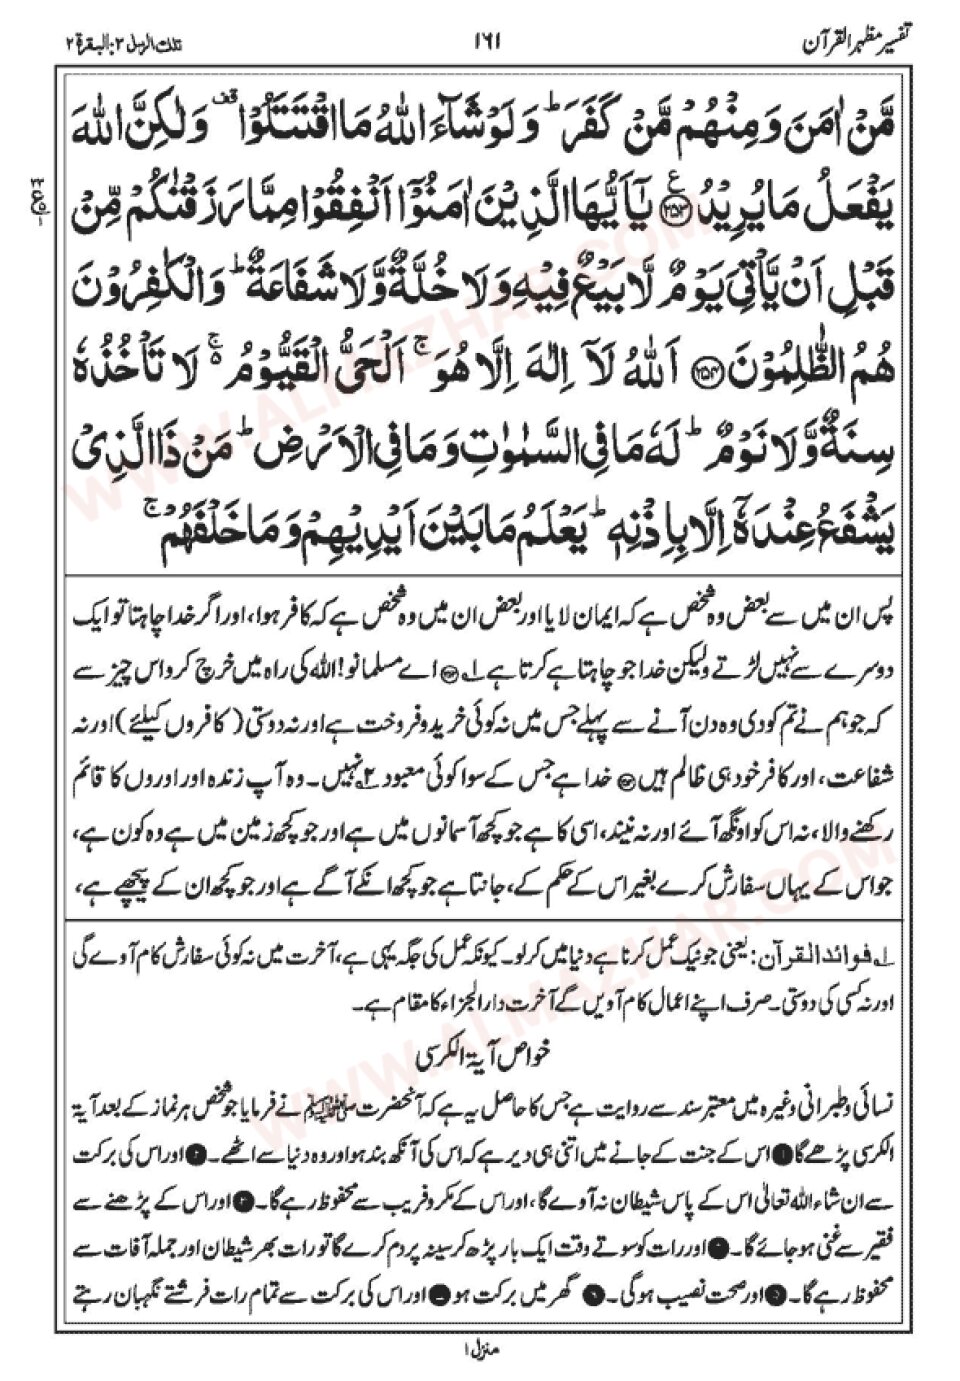 تفسیر مظہر القرآن ۱۶۱ تلک الرسل ۳: البقرۃ ۲
مَّنْ اٰمَنَ وَمِنْهُمْ مَّنْ كَفَرَ ؕ وَلَوْ شَآءَ اللّٰهُ مَا اقْتَتَلُوْا قف وَلٰكِنَّ اللّٰهَ
يَفْعَلُ مَا يُرِيْدُ ﴿۲۵۳﴾ ع يٰۤاَيُّهَا الَّذِيْنَ اٰمَنُوْۤا اَنْفِقُوْا مِمَّا رَزَقْنٰكُمْ مِّنْ
قَبْلِ اَنْ يَّاْتِيَ يَوْمٌ لَّا بَيْعٌ فِيْهِ وَلَا خُلَّةٌ وَّلَا شَفَاعَةٌ ؕ وَالْكٰفِرُوْنَ
هُمُ الظّٰلِمُوْنَ ﴿۲۵۴﴾ اَللّٰهُ لَاۤ اِلٰهَ اِلَّا هُوَ ۚ اَلْحَيُّ الْقَيُّوْمُ ۚ لَا تَاْخُذُهٗ
سِنَةٌ وَّلَا نَوْمٌ ؕ لَهٗ مَا فِي السَّمٰوٰتِ وَمَا فِي الْاَرْضِ ؕ مَنْ ذَا الَّذِيْ
يَشْفَعُ عِنْدَهٗۤ اِلَّا بِاِذْنِهٖ ؕ يَعْلَمُ مَا بَيْنَ اَيْدِيْهِمْ وَمَا خَلْفَهُمْ ۚ
پس ان میں سے بعض وہ شخص ہے کہ ایمان لایا اور بعض ان میں وہ شخص ہے کہ کافر ہوا، اور اگر خدا چاہتا تو ایک
دوسرے سے نہیں لڑتے ولیکن خدا جو چاہتا ہے کرتا ہے ۱؎ ﴿۲۵۳﴾ اے مسلمانو! اللہ کی راہ میں خرچ کرو اس چیز سے
کہ جو ہم نے تم کو دی وہ دن آنے سے پہلے جس میں نہ کوئی خرید و فروخت ہے اور نہ دوستی (کافروں کیلئے) اور نہ
شفاعت، اور کافر خود ہی ظالم ہیں ﴿۲۵۴﴾ خدا ہے جس کے سوا کوئی معبود ۲؎ نہیں۔ وہ آپ زندہ اور اوروں کا قائم
رکھنے والا، نہ اس کو اونگھ آئے اور نہ نیند، اسی کا ہے جو کچھ آسمانوں میں ہے اور جو کچھ زمین میں ہے وہ کون ہے،
جو اس کے یہاں سفارش کرے بغیر اس کے حکم کے، جانتا ہے جو کچھ انکے آگے ہے اور جو کچھ ان کے پیچھے ہے،
۱؎ فوائد القرآن: یعنی جو نیک عمل کرنا ہے دنیا میں کرلو۔ کیونکہ عمل کی جگہ یہی ہے، آخرت میں نہ کوئی سفارش کام آوے گی
اور نہ کسی کی دوستی۔ صرف اپنے اعمال کام آویں گے آخرت دارالجزاء کا مقام ہے۔
خواص آیۃ الکرسی
نسائی و طبرانی وغیرہ میں معتبر سند سے روایت ہے جس کا حاصل یہ ہے کہ آنحضرت ﷺ نے فرمایا جو شخص ہر نماز کے بعد آیۃ
الکرسی پڑھے گا ۱ اس کے جنت کے جانے میں اتنی ہی دیر ہے کہ اس کی آنکھ بند ہو اور وہ دنیا سے اٹھے۔ ۲ اور اس کی برکت
سے ان شاء اللہ تعالیٰ اس کے پاس شیطان نہ آوے گا، اور اس کے مکر و فریب سے محفوظ رہے گا۔ ۳ اور اس کے پڑھنے سے
فقیر سے غنی ہو جائے گا۔ ۴ اور رات کو سوتے وقت ایک بار پڑھ کر سینہ پر دم کرے گا تو رات بھر شیطان اور جملہ آفات سے
محفوظ رہے گا۔ ۵ اور صحت نصیب ہوگی۔ ۶ گھر میں برکت ہو ۷ اور اس کی برکت سے تمام رات فرشتے نگہبان رہتے
منزل ۱
WWW.ALMAZHAR.COM
WWW.ALMAZHAR.COM